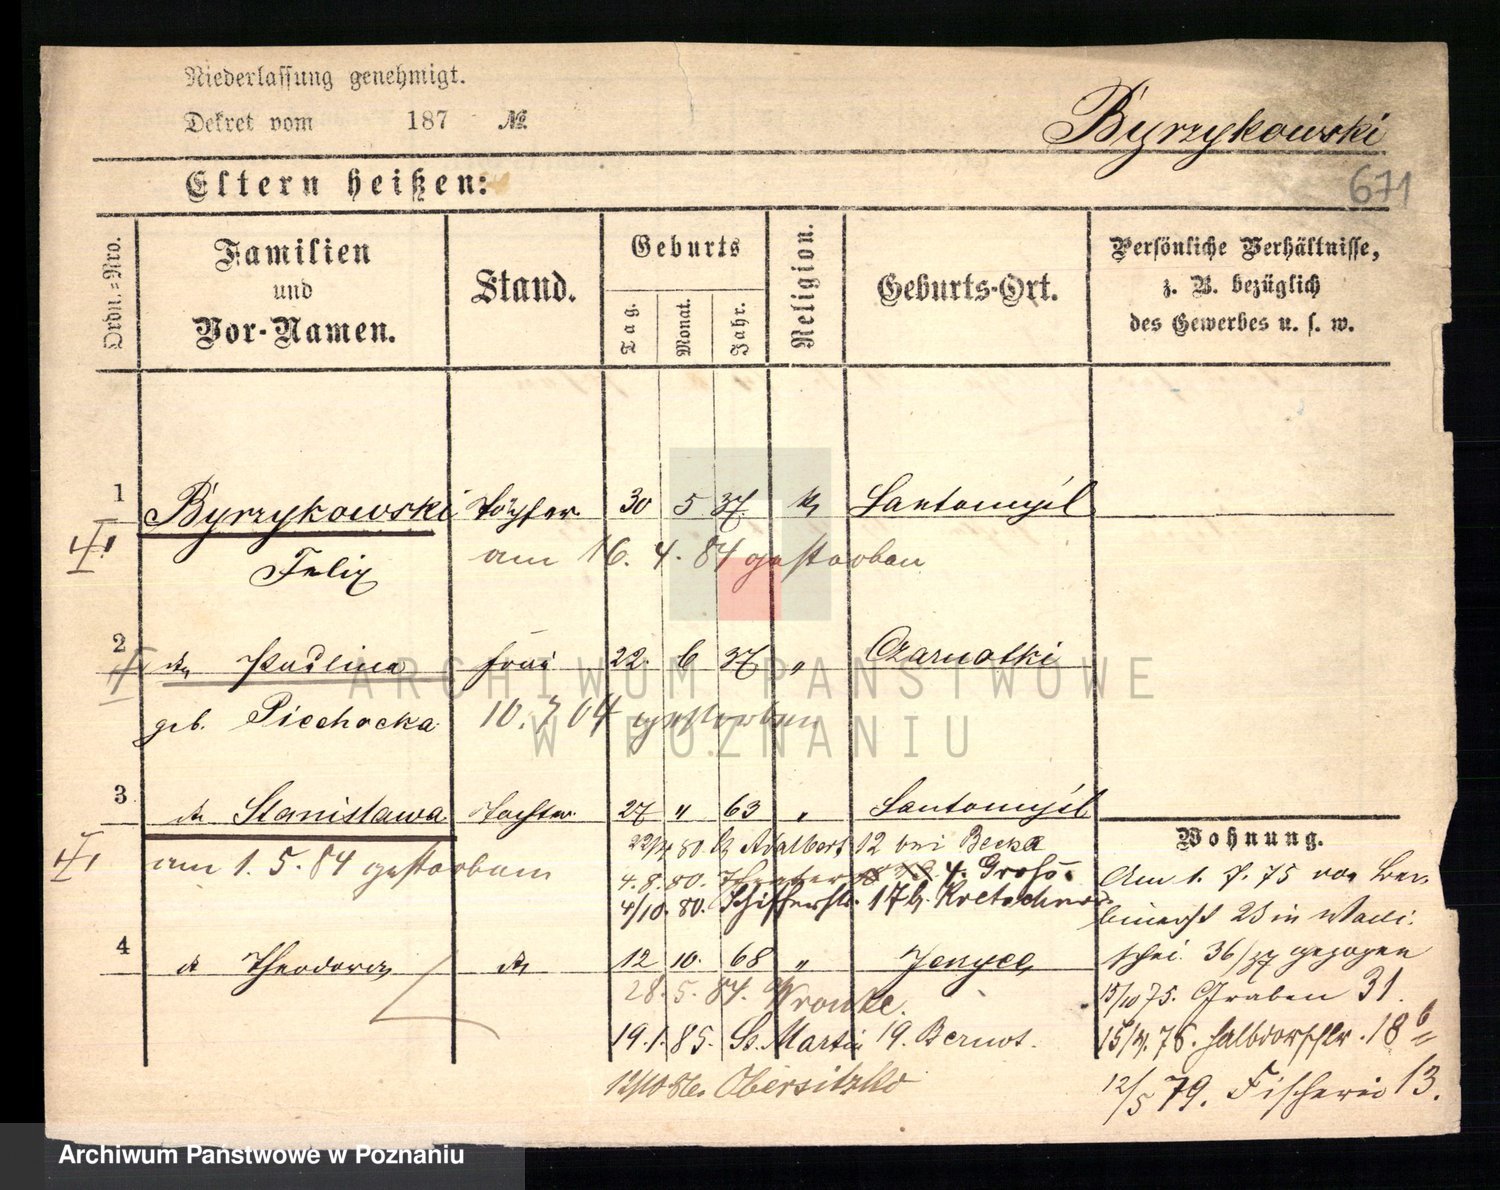 Niederlassung genehmigt.
Dekret vom 187 №
Byrzykowski
671
Eltern heißen:
Ordn.=Nro.
Familien und Vor-Namen.
Stand.
Geburts
Tag.
Monat.
Jahr.
Religion.
Geburts-Ort.
Persönliche Verhältnisse,
z. B. bezüglich
des Gewerbes u. s. w.
1 Byrzykowski Töpfer 30 5 37. k Santomysl
Felix am 16. 4. 84 gestorben
2 Paulina Frau 22. 6 37 " Czarnotki
ARCHIWUM PAŃSTWOWE
W POZNANIU
geb. Piechocka 10. 7 04 gestorben
3 Stanislawa Tochter 27 " 63 " Santomysl
Wohnung.
80. Adalbert 12 bei Becka
am 1. 5. 84 gestorben
4. 8. 80. 4. Gross.
4/10. 80. Schifferstr. 17
Am 1. 7. 75 von
23 in Walli-
4 Theodora 12 10. 68 "
schei 36/37 gezogen
28. 5. 84. Wronke.
15/10 75. Graben 31.
19. 1. 85. St. Martin 19. Bernot.
76. Halbdorfstr. 18 b
12/10 86. Obersitzko
12/5 79. Fischerei 13.
Archiwum Państwowe w Poznaniu